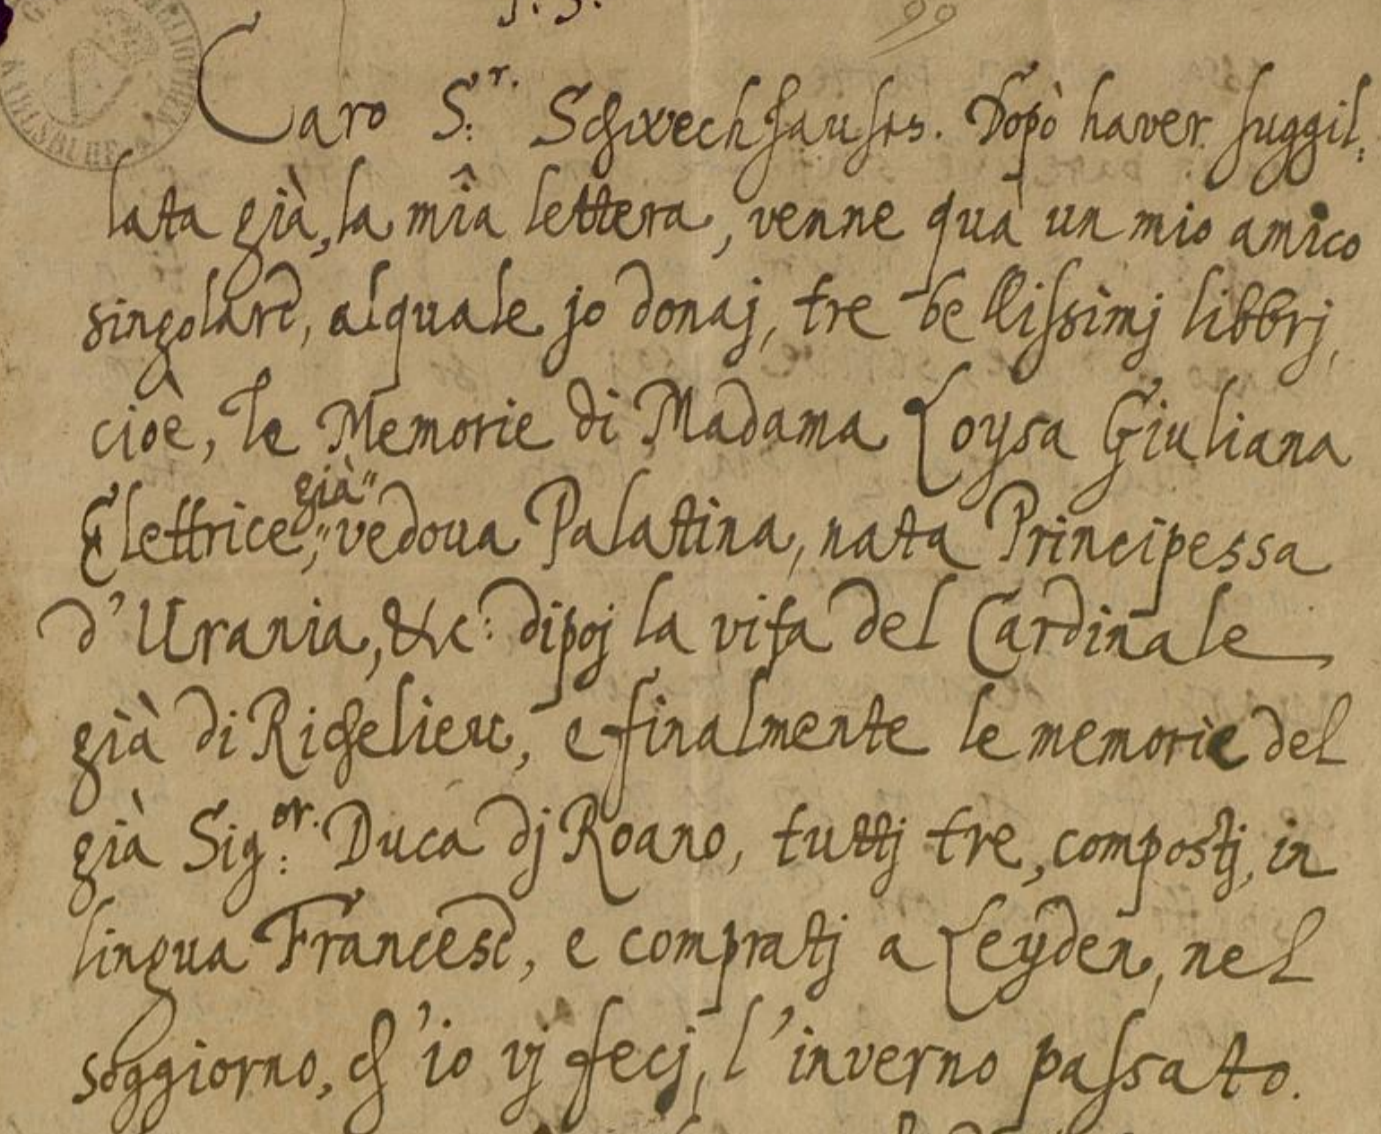 P. S.
99
Caro S:r. Schwechhausen. Dopò haver suggil,
lata già, la mîa lettera, venne quà un mio amico
singolare, alquale jo donaj, tre bellissimj librj,
cioè, le Memorie di Madama Loysa Giuliana
Elettrice, già vedoua Palatina, nata Principessa
d'Urania, &c: dipoj la vita del Cardinale
già di Richelieu, e finalmente le memorie del
già Sig:or. Duca dj Roano, tuttj tre, compostj, in
lingua Francese, e compratj a Leyden, nel
soggiorno, ch'io vj fecj, l'inverno passato.